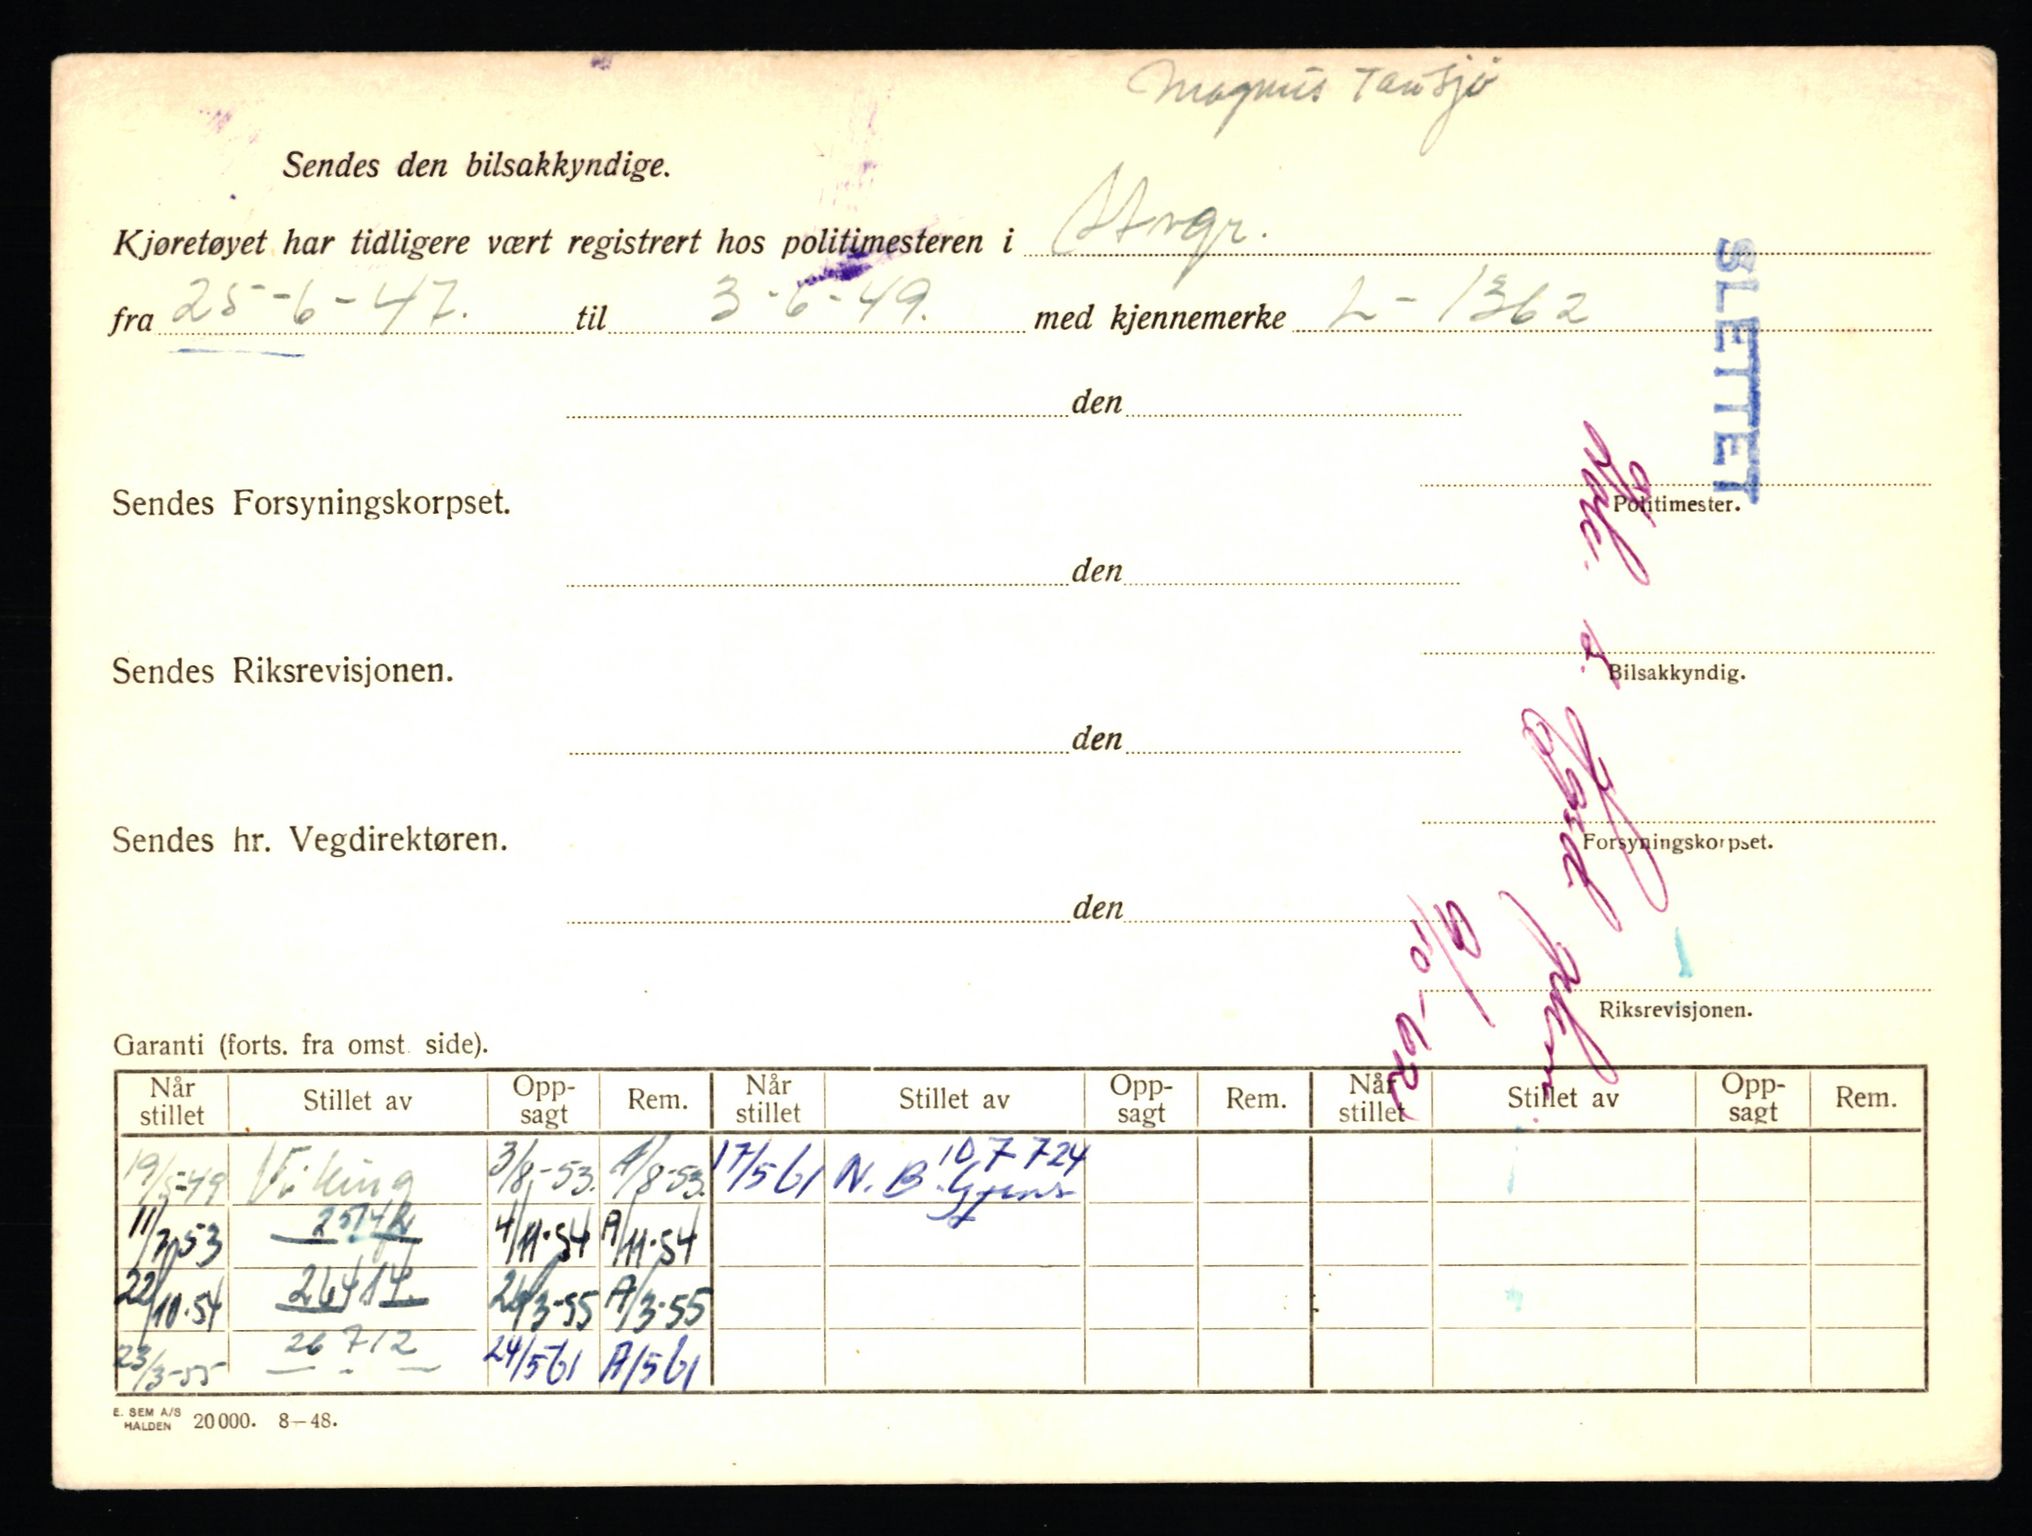 Magnus Tausjø
Sendes den bilsakkyndige.
Kjøretøyet har tidligere vært registrert hos politimesteren i Stvgr.
fra 25-6-47. til 3-6-49. med kjennemerke L-1362
SLETTET
den
Politimester.
Sendes Forsyningskorpset.
den
Bilsakkyndig.
Sendes Riksrevisjonen.
den
Forsyningskorpset.
Sendes hr. Vegdirektøren.
den
Riksrevisjonen.
Garanti (forts. fra omst. side).
Når stillet Stillet av Opp-sagt Rem. Når stillet Stillet av Opp-sagt Rem. Når stillet Stillet av Opp-sagt Rem.
19/5-49 Viking 3/8-53. A/8-53. 17/5 61 N.B. Gjens 107724
11/7 53 4/11-54 A/11-54
22/10-54 26414 A/3-55
23/3-55 26712 24/5 61 A/5 61
E. SEM A/S HALDEN 20000. 8—48.